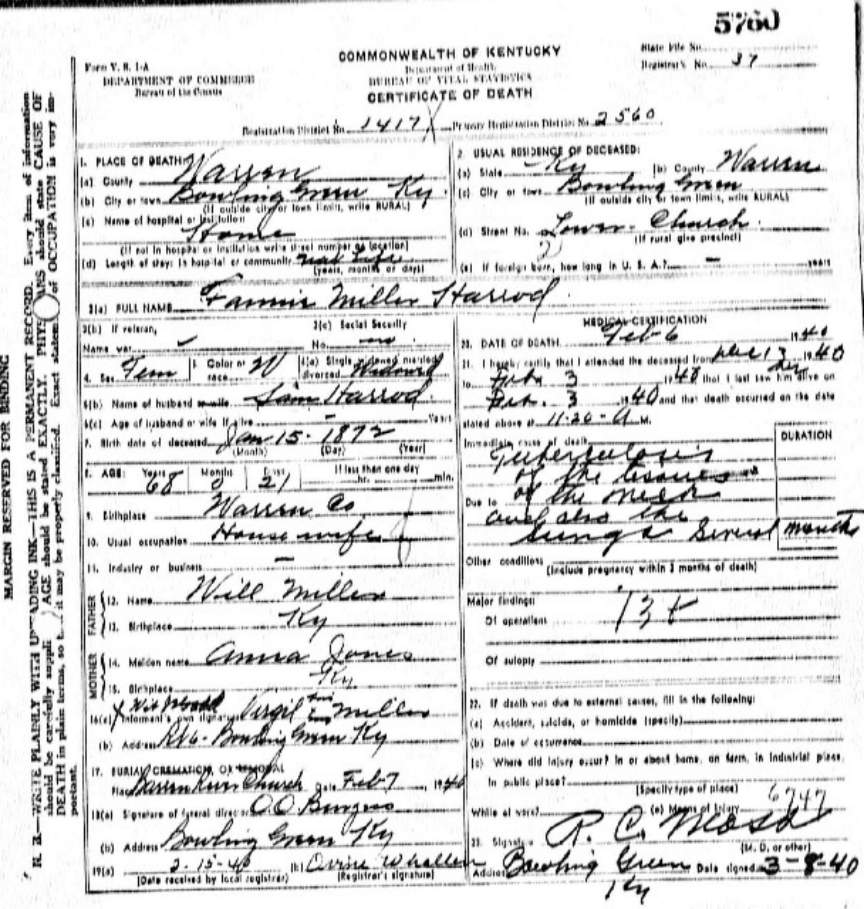 5760
COMMONWEALTH OF KENTUCKY
Department of Health
BUREAU OF VITAL STATISTICS
CERTIFICATE OF DEATH
Form V. S. 1-A
DEPARTMENT OF COMMERCE
Bureau of the Census
State File No.
Registrar's No. 37
Registration District No. 1417 Primary Registration District No. 2560
MARGIN RESERVED FOR BINDING
N. B.—WRITE PLAINLY WITH UNFADING INK—THIS IS A PERMANENT RECORD. Every item of information
should be carefully AGE should be stated EXACTLY. should state CAUSE OF
DEATH in plain terms, so it may be properly classified. Exact of OCCUPATION is very im-
portant.
1. PLACE OF DEATH:
(a) County Warren
(b) City or town Bowling Green Ky.
(If outside city or town limits, write RURAL)
(c) Name of hospital or institution
Home
(If not in hospital or institution write street number or location)
(d) Length of stay: In hospital or community
(years, months or days)
2. USUAL RESIDENCE OF DECEASED:
(a) State Ky (b) County Warren
(c) City or town Bowling Green
(If outside city or town limits, write RURAL)
(d) Street No. Lower Church
(If rural give precinct)
(e) If foreign born, how long in U. S. A.? — years
3(a) FULL NAME Fannie Miller Harrod
3(b) If veteran,
Name war
3(c) Social Security
No.
4. Sex Fem 5. Color or race W 6(a) Single widowed married divorced Widowed
6(b) Name of husband or wife Sam Harrod
6(c) Age of husband or wife if alive — Years
7. Birth date of deceased Jan 15 - 1872
(Month) (Day) (Year)
8. AGE: Years 68 Months 0 Days 21 If less than one day
hr. min.
9. Birthplace Warren Co
10. Usual occupation House wife
11. Industry or business —
FATHER
12. Name Will Miller
13. Birthplace Ky
MOTHER
14. Maiden name Anna Jones
15. Birthplace Ky
16(a) Informant's own signature Virgil Miller
(b) Address Bowling Green Ky
17. BURIAL, CREMATION, OR REMOVAL
Place Barren River Church Date Feb 7, 1940
18(a) Signature of funeral director O O Burgess
(b) Address Bowling Green Ky
19(a) 2-15-40 (b)
(Date received by local registrar) (Registrar's signature)
MEDICAL CERTIFICATION
20. DATE OF DEATH Feb 6 1940
21. I hereby certify that I attended the deceased from 1940
to Feb. 3 1940 that I last saw him alive on
Feb. 3 1940 and that death occurred on the date
stated above at 11-20-A M.
Immediate cause of death
DURATION
Tuberculosis
of the tissues
Due to of the neck
and also the
lungs Several months
Other conditions
(Include pregnancy within 3 months of death)
Major findings:
Of operations
Of autopsy
22. If death was due to external causes, fill in the following:
(a) Accident, suicide, or homicide (specify)
(b) Date of occurrence
(c) Where did injury occur? In or about home, on farm, in industrial place,
in public place?
(Specify type of place)
While at work? (e) Means of Injury
6747
23. Signature R. C.
(M. D. or other)
Address Bowling Green Date signed 3-8-40
Ky